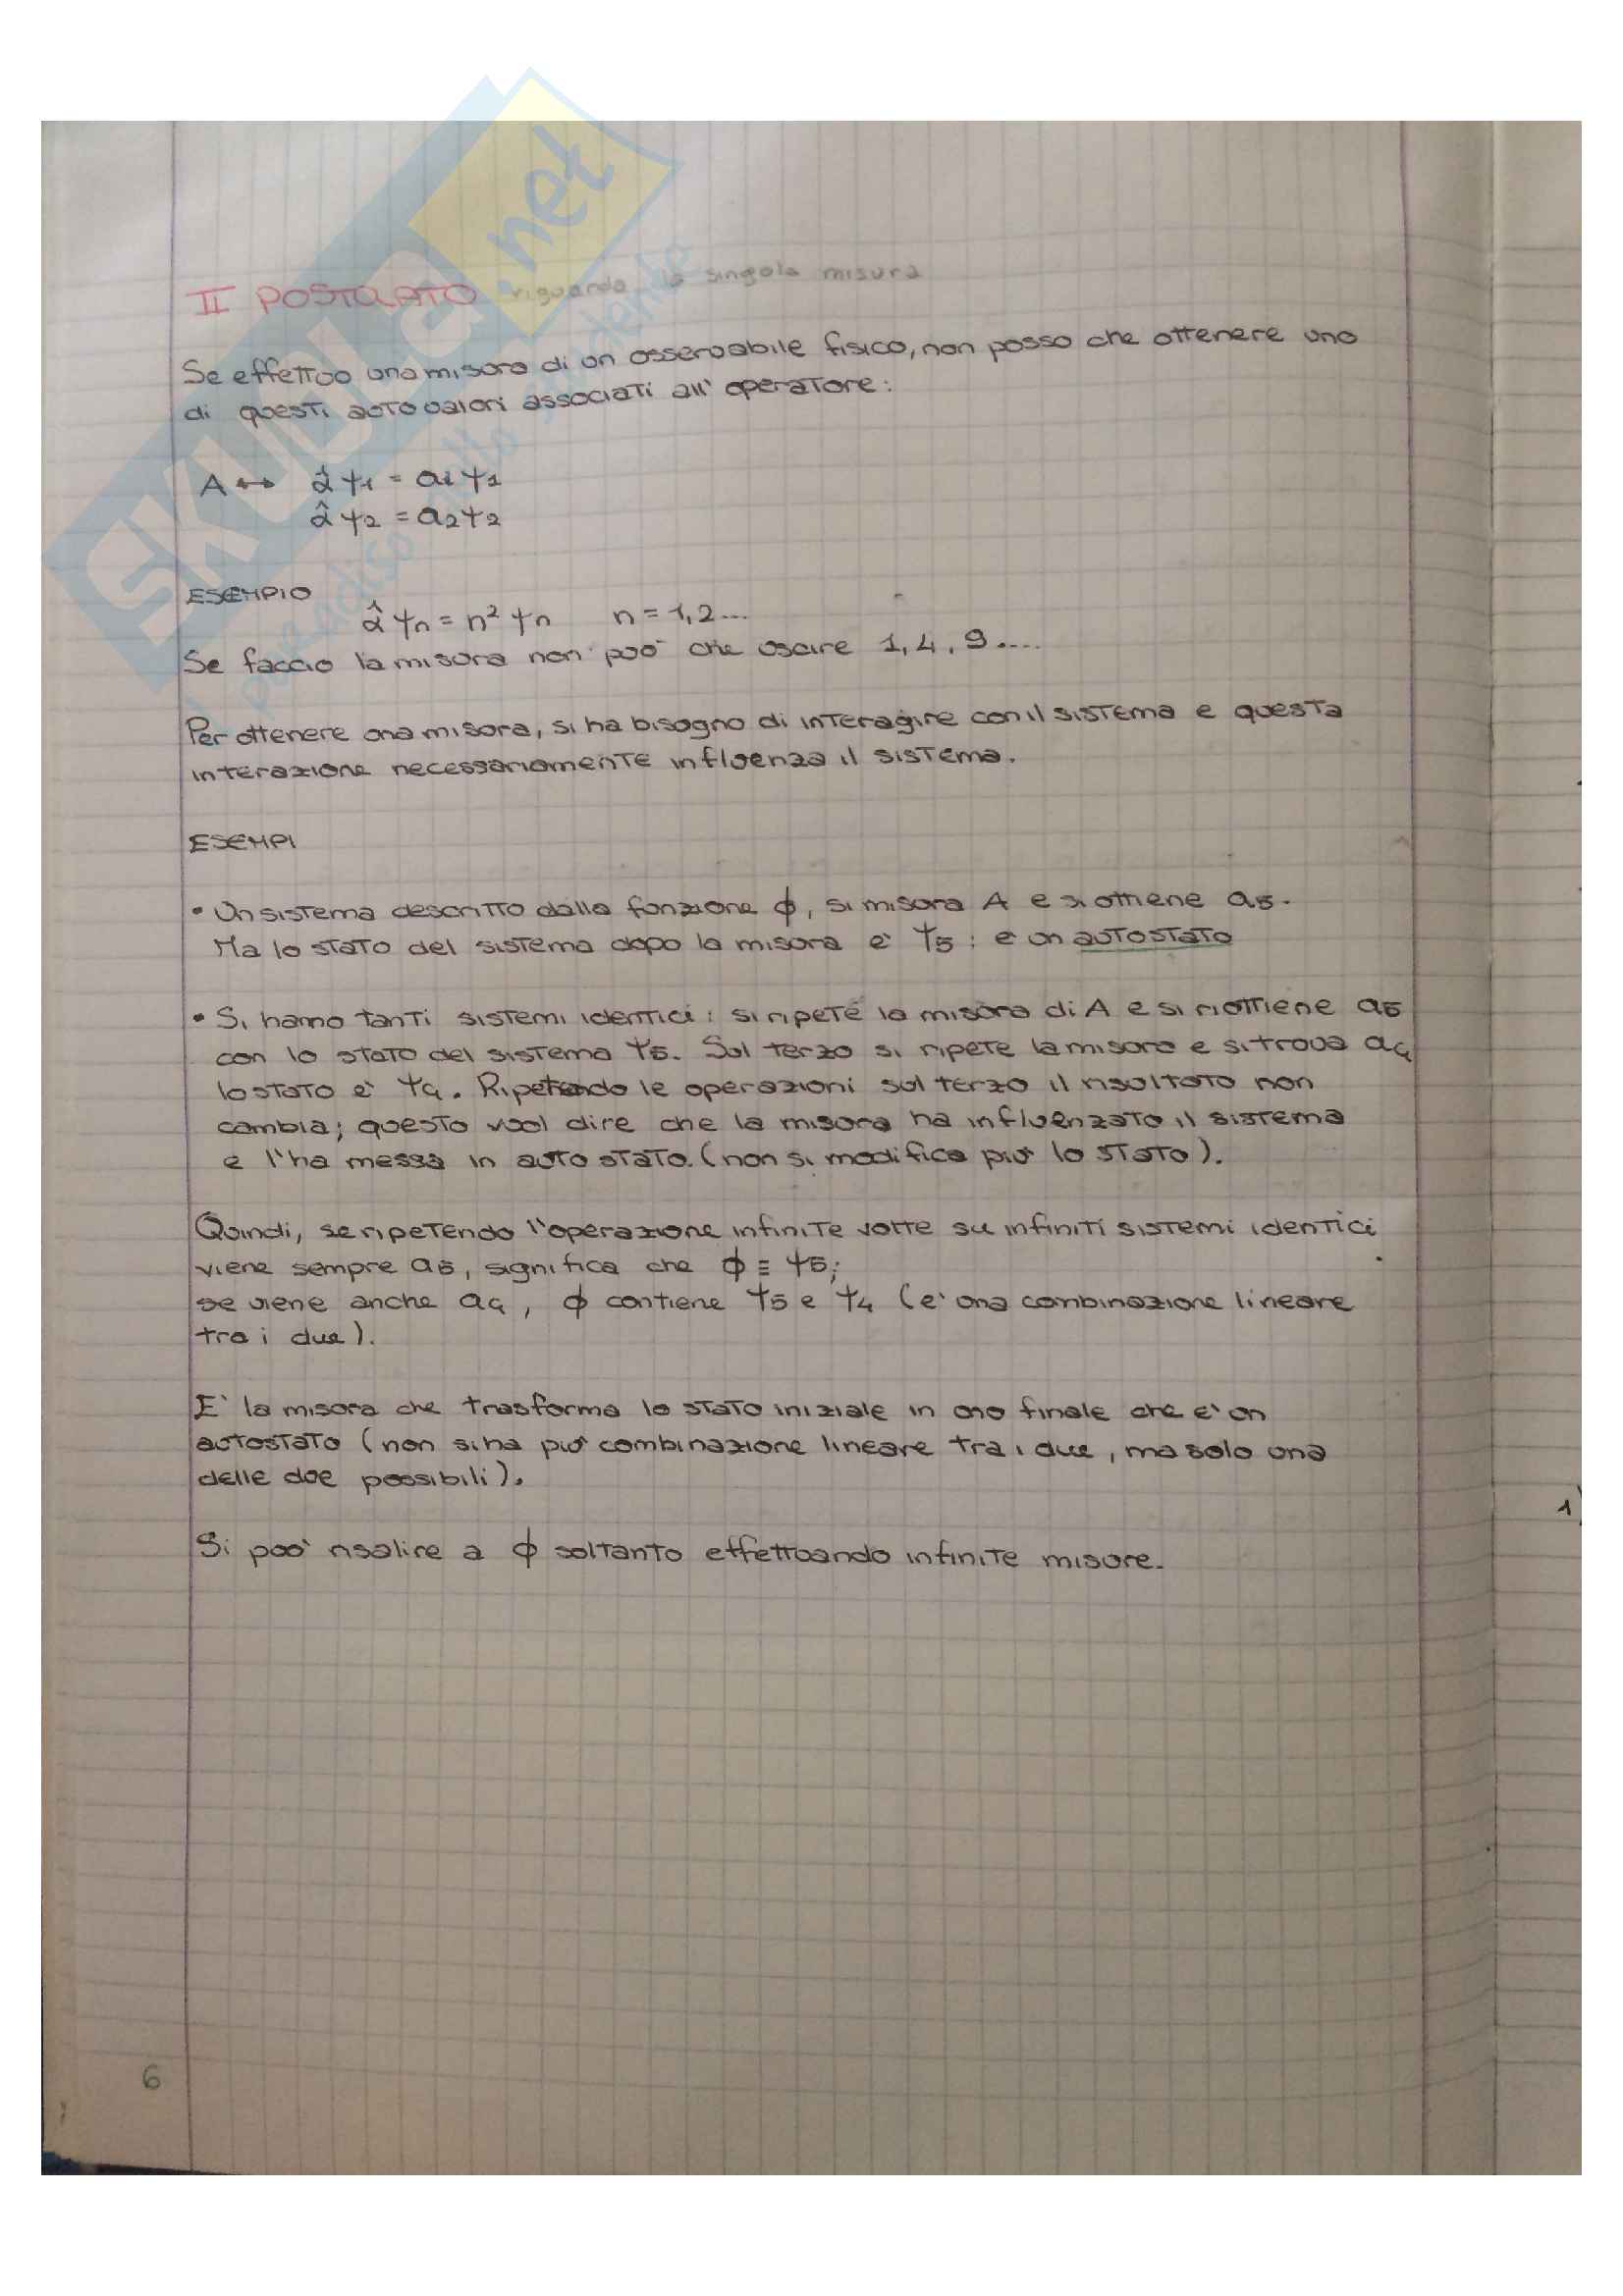 SKUOLA.net
paradiso dello studente
II POSTULATO riguarda la singola misura
Se effettuo una misura di un osservabile fisico, non posso che ottenere uno
di questi autovalori associati all' operatore:
A ↔ α̂ ψ1 = a1 ψ1
α̂ ψ2 = a2 ψ2
ESEMPIO
α̂ ψn = n² ψn n = 1,2...
Se faccio la misura non può che uscire 1, 4, 9....
Per ottenere una misura, si ha bisogno di interagire con il sistema e questa
interazione necessariamente influenza il sistema.
ESEMPI
• Un sistema descritto dalla funzione ϕ, si misura A e si ottiene a5.
Ma lo stato del sistema dopo la misura è ψ5: è un autostato
• Si hanno tanti sistemi identici: si ripete la misura di A e si riottiene a5
con lo stato del sistema ψ5. Sul terzo si ripete la misura e si trova a4
lo stato è ψ4. Ripetendo le operazioni sul terzo il risultato non
cambia; questo vuol dire che la misura ha influenzato il sistema
e l'ha messa in auto stato. (non si modifica più lo stato).
Quindi, se ripetendo l'operazione infinite volte su infiniti sistemi identici
viene sempre a5, significa che ϕ ≡ ψ5;
se viene anche a4, ϕ contiene ψ5 e ψ4 (è una combinazione lineare
tra i due).
E' la misura che trasforma lo stato iniziale in uno finale che è un
autostato (non si ha più combinazione lineare tra i due, ma solo una
delle due possibili).
Si può risalire a ϕ soltanto effettuando infinite misure.
1)
6